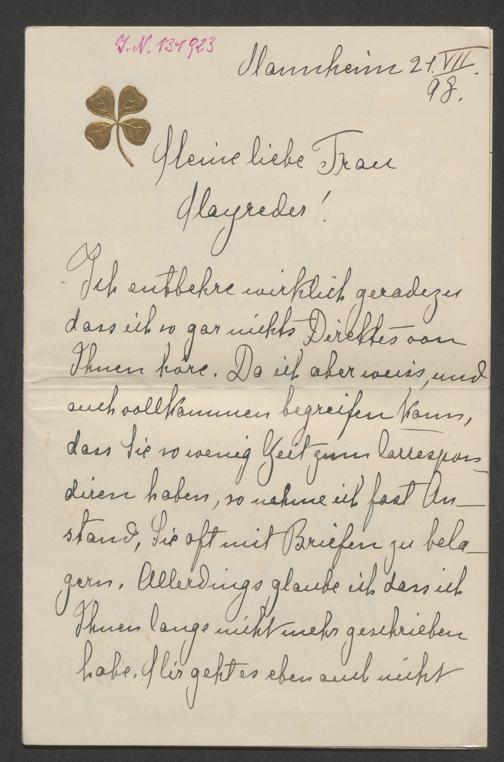 J.N. 131923
Mannheim 21.VII.
98.
Meine liebe Frau
Mayreder!
Ich entbehre wirklich geradezu
dass ich so gar nichts Direktes von
Ihnen höre. Da ich aber weiss, und
auch vollkommen begreifen kann,
dass Sie so wenig Zeit zum Correspon-
diren haben, so nehme ich fast An-
stand, Sie oft mit Briefen zu bela-
gern. Allerdings glaube ich dass ich
Ihnen lange nicht mehr geschrieben
habe. Mir geht es eben auch nicht